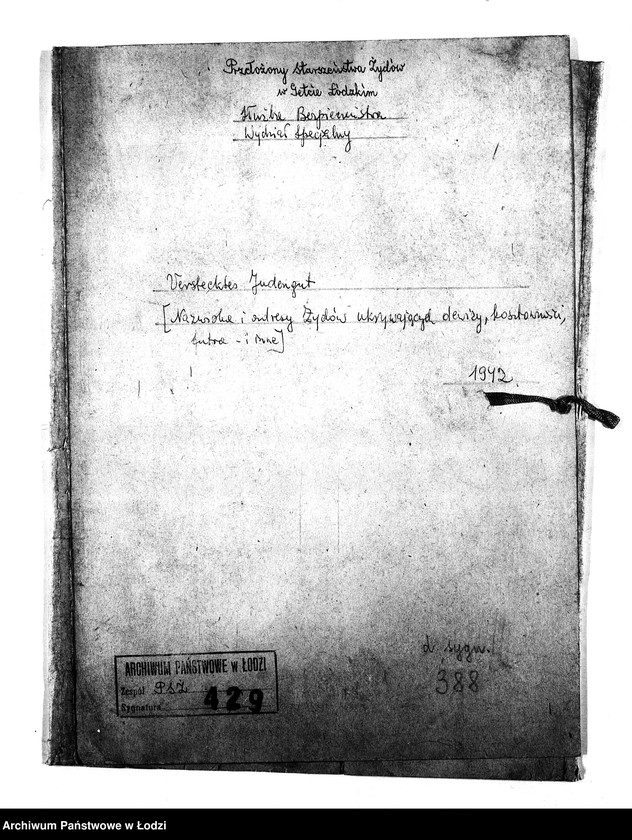 Przełożony Starszeństwa Żydów
w Getcie Łodzkim
Służba Bezpieczeństwa
Wydział Specjalny
Verstecktes Judengut
[Nazwiska i adresy Żydów ukrywających dewizy, kosztowności,
futra - i inne]
1942
d. sygn.
388
ARCHIWUM PAŃSTWOWE w ŁODZI
Zespół PSŻ
Sygnatura 429
Archiwum Państwowe w Łodzi